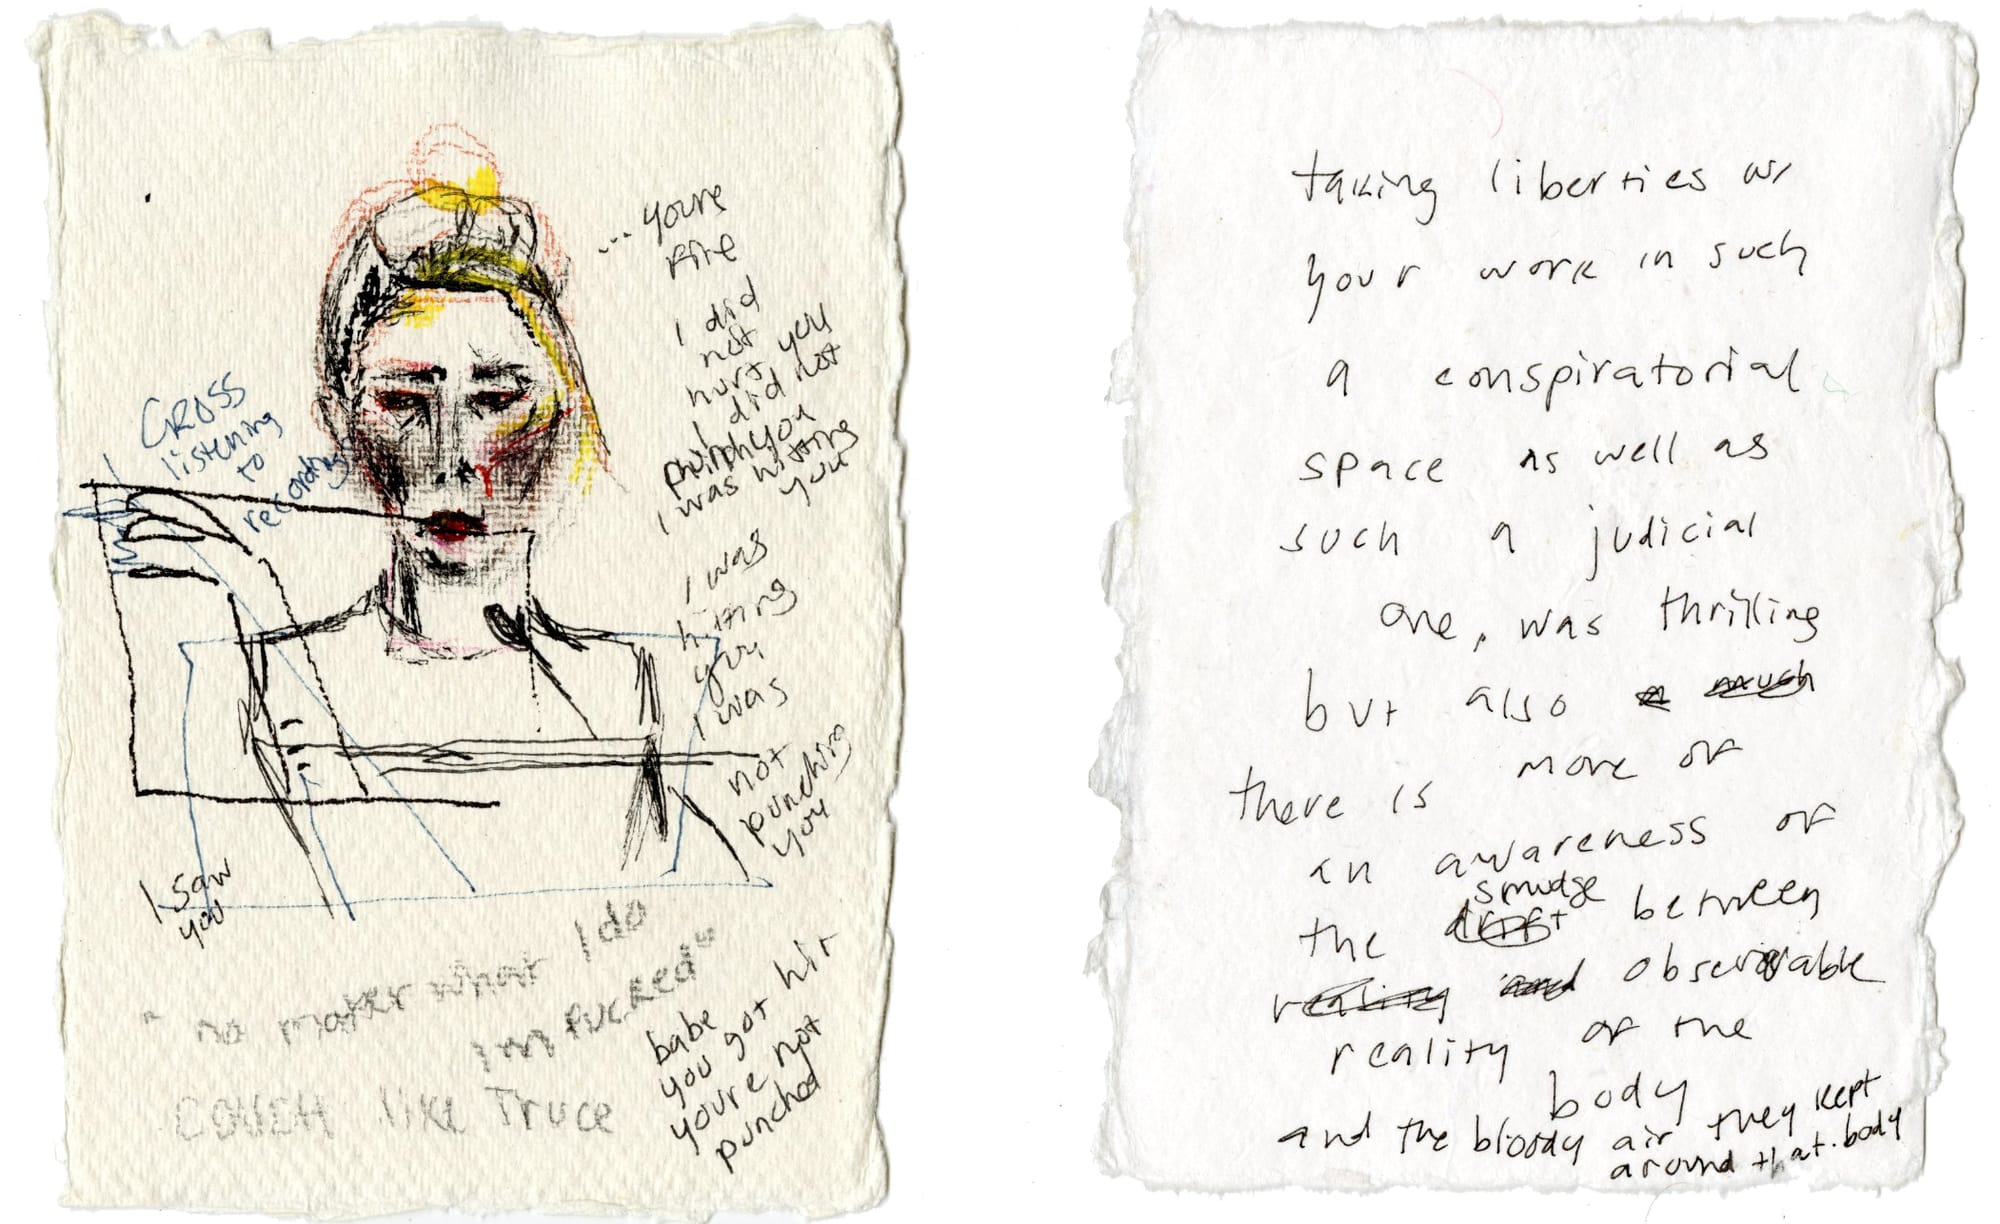 ... youre
fine
I did
not
hurt you
I did not
punch you
I was hitting
you
I was
hitting
you
I was
not
punching
you
CROSS
listening
to
recordings
I saw
you
"no matter what I do
im fucked"
COUCH like Truce
babe
you got hit
youre not
punched
taking liberties w/
your work in such
a conspiratorial
space as well as
such a judicial
one, was thrilling
but also a much
there is more of
an awareness of
smudge
the drift between
reality and observable
reality of the
body
and the bloody air they kept
around that body